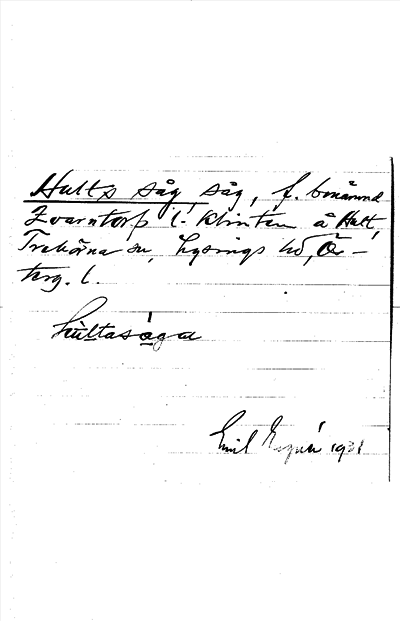 Hults såg, såg, f. benämnd
Qvarntorp l. Klinten å Hult,
Trehörna sn, Lysings hd, Ös-
terg. l.
hùltasága
Emil 1931